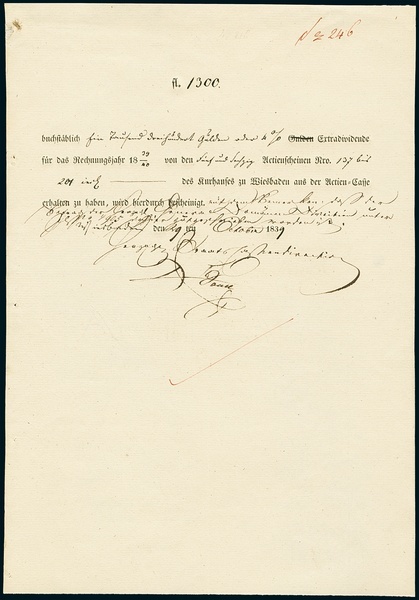 № 246
fl. 1300.
buchstäblich Ein Tausend dreihundert Gulden oder 4 % Gulden Extradividende
für das Rechnungsjahr 18 39/40 von den fünf und sechzig Actienscheinen Nro. 137 bis
201 incl. des Kurhauses zu Wiesbaden aus der Actien-Casse
erhalten zu haben, wird hierdurch bescheinigt, mit dem Bemerken, daß der
unter
worden
Wiesbaden den 29 ten October 1839
Herzogl. Staats Cassendirection